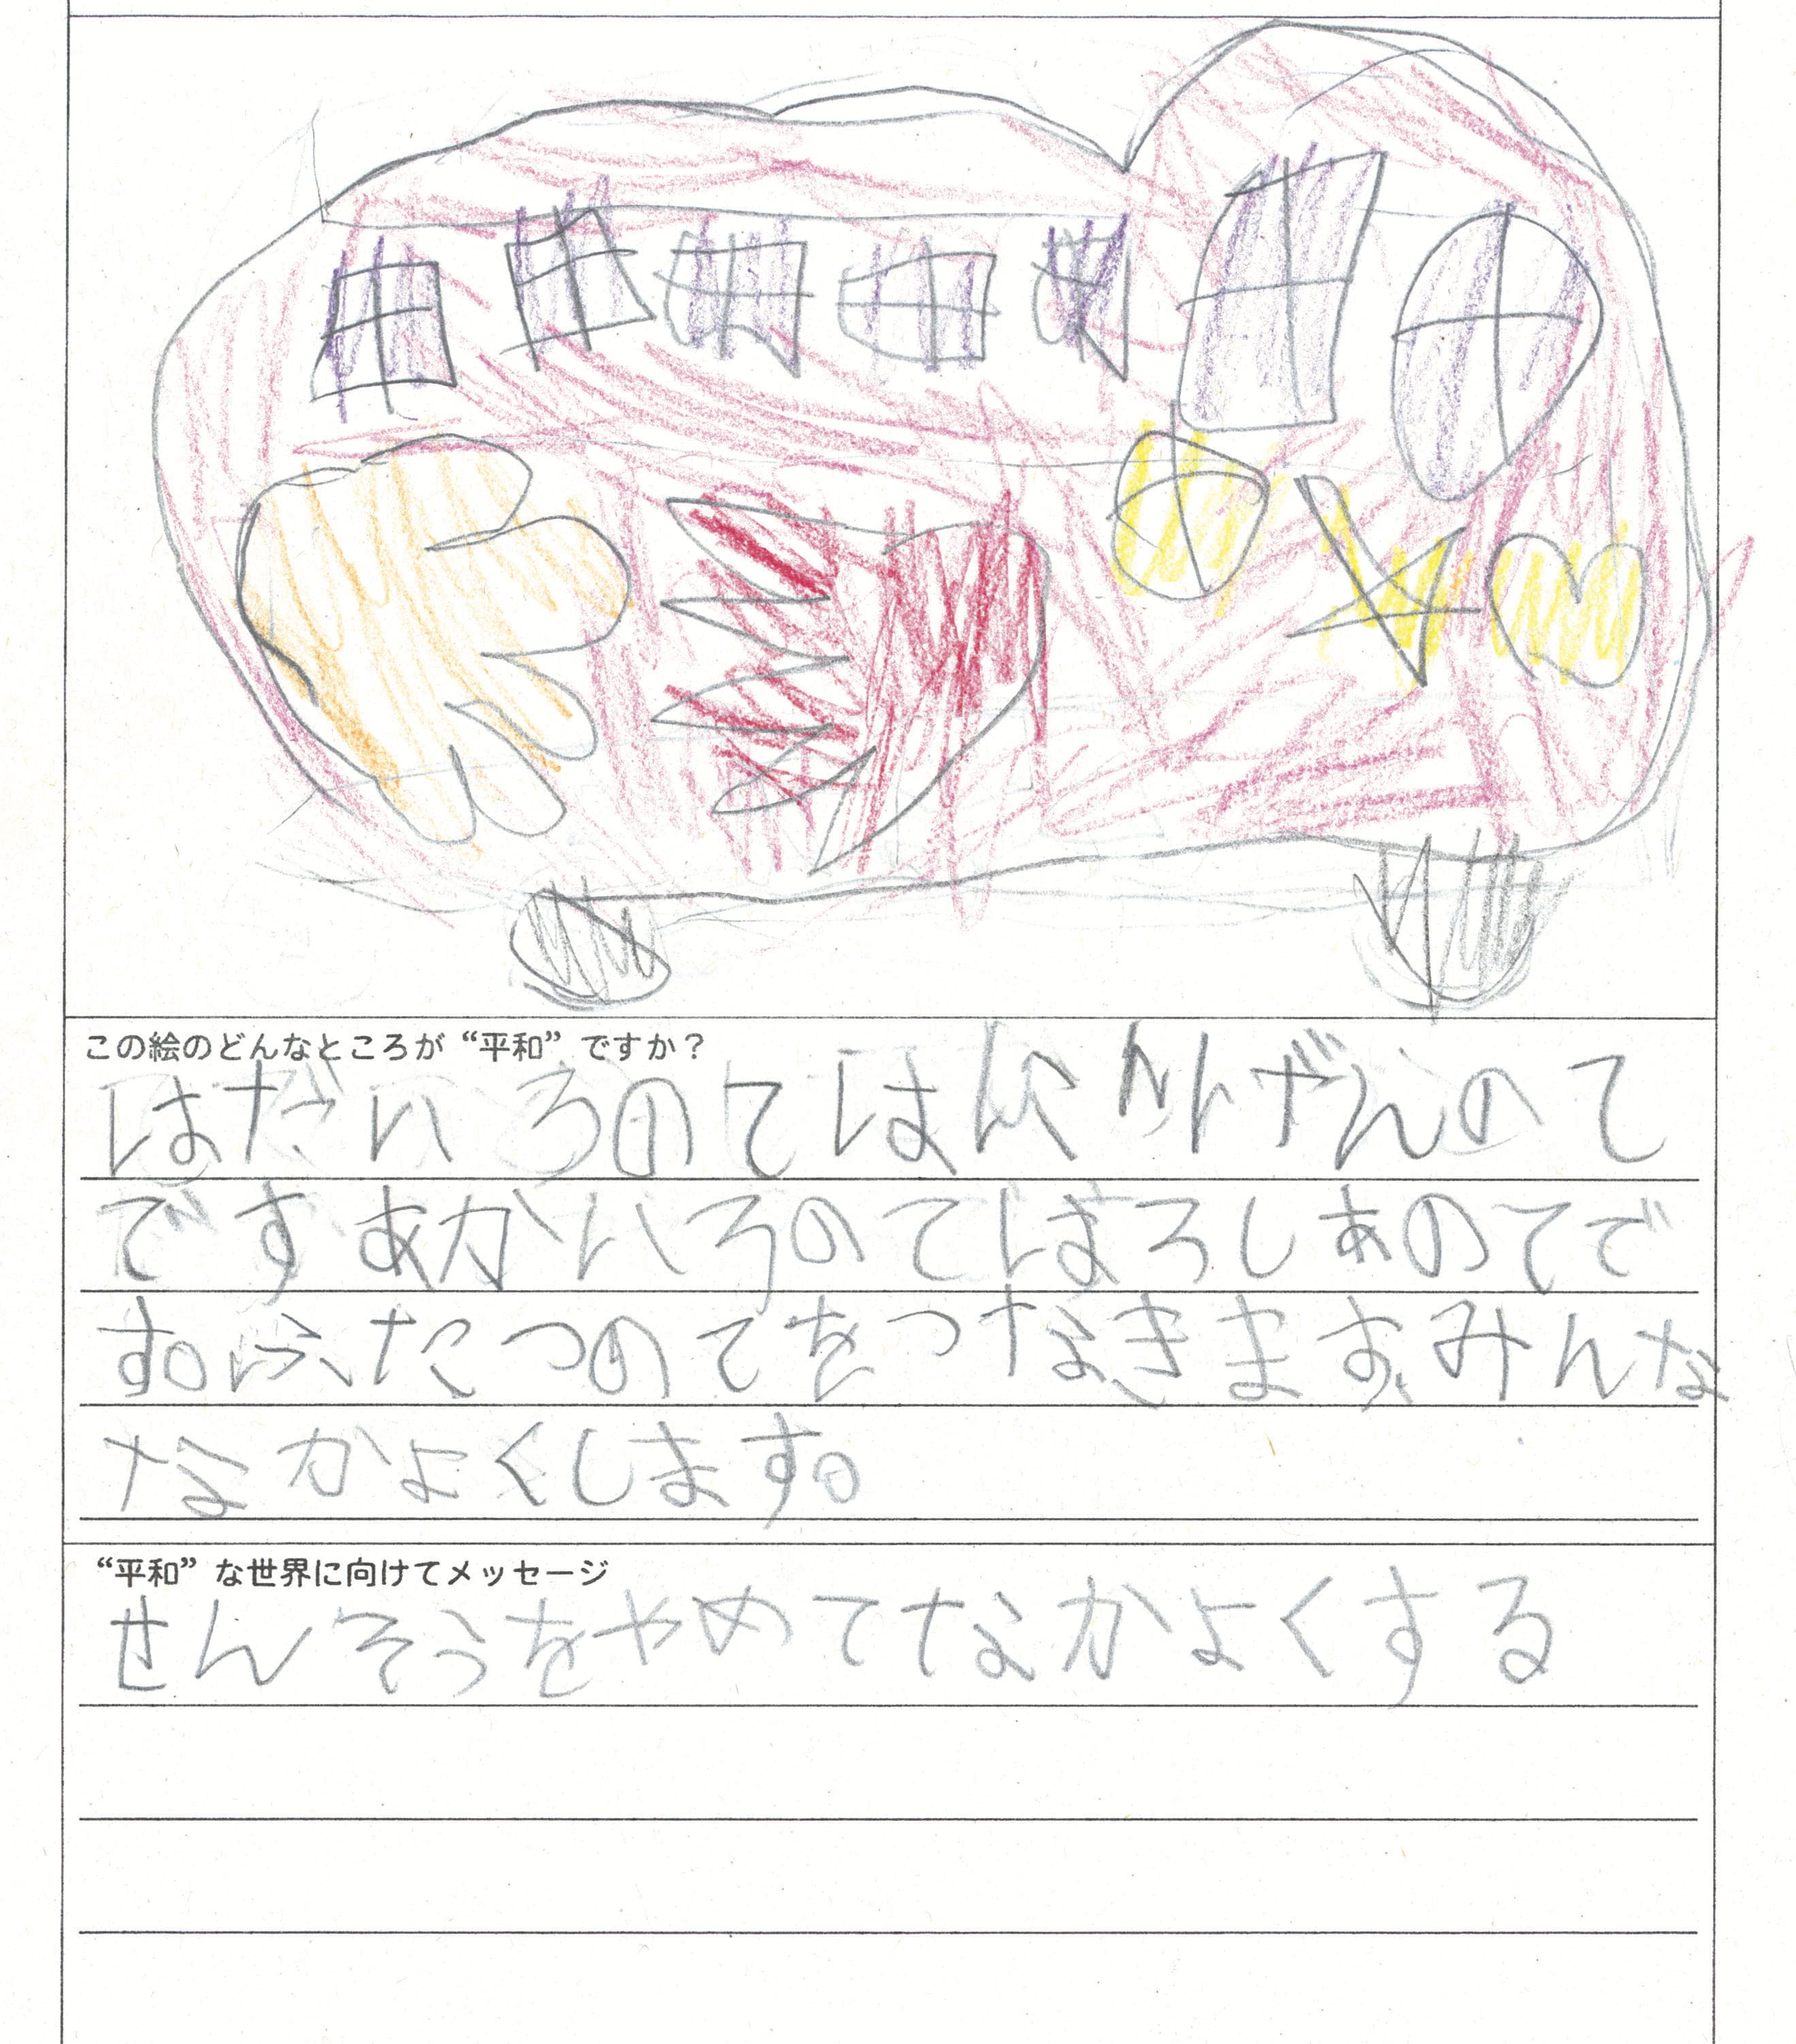 この絵のどんなところが“平和”ですか？
はだいろのてはにんげんのて
ですあかいろのてはろしあのてで
す。ふたつのてをつなきます。みんな
なかよくします。
“平和”な世界に向けてメッセージ
せんそうをやめてなかよくする